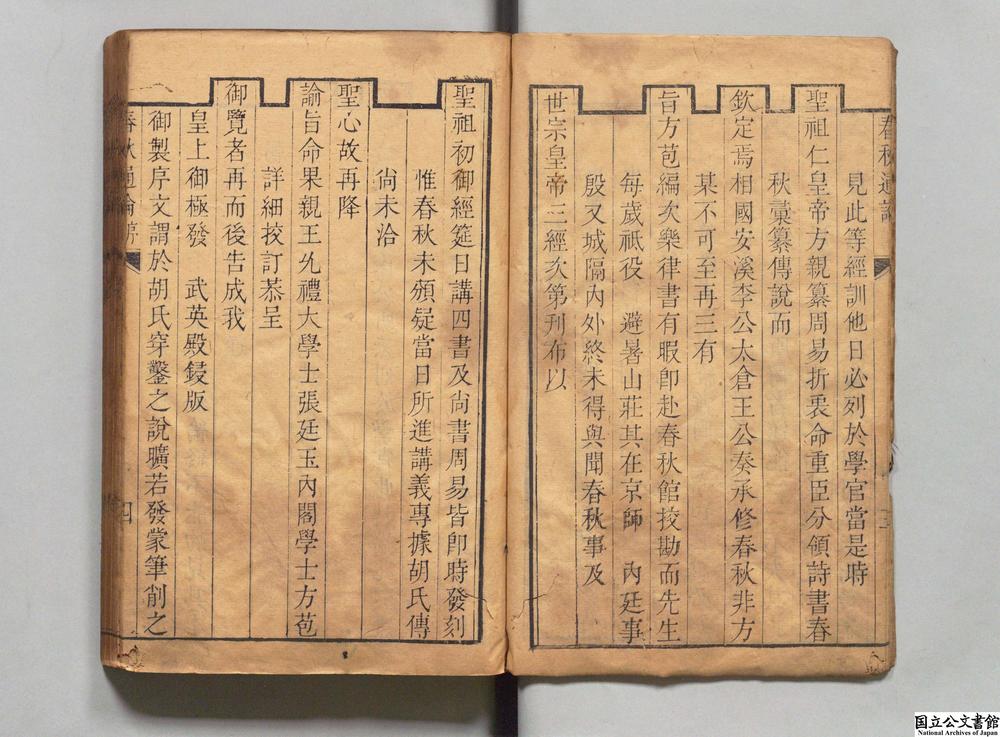 春秋通論
三
見此等經訓他日必列於學官當是時
聖祖仁皇帝方親纂周易折衷命重臣分領詩書春
秋彙纂傳說而
欽定焉相國安溪李公太倉王公奏承修春秋非方
某不可至再三有
旨方苞編次樂律書有暇卽赴春秋館挍勘而先生
每歲祗役　避暑山莊其在京師　內廷事
殷又城隔內外終未得與聞春秋事及
世宗皇帝三經次第刊布以
聖祖初御經筵日講四書及尚書周易皆卽時發刻
惟春秋未頒疑當日所進講義專據胡氏傳
尚未洽
聖心故再降
諭旨命果親王允禮大學士張廷玉內閣學士方苞
詳細挍訂恭呈
御覽者再而後告成我
皇上御極發　武英殿鋟版
御製序文謂於胡氏穿鑿之說曠若發蒙筆削之
春秋通論序
四
国立公文書館
National Archives of Japan